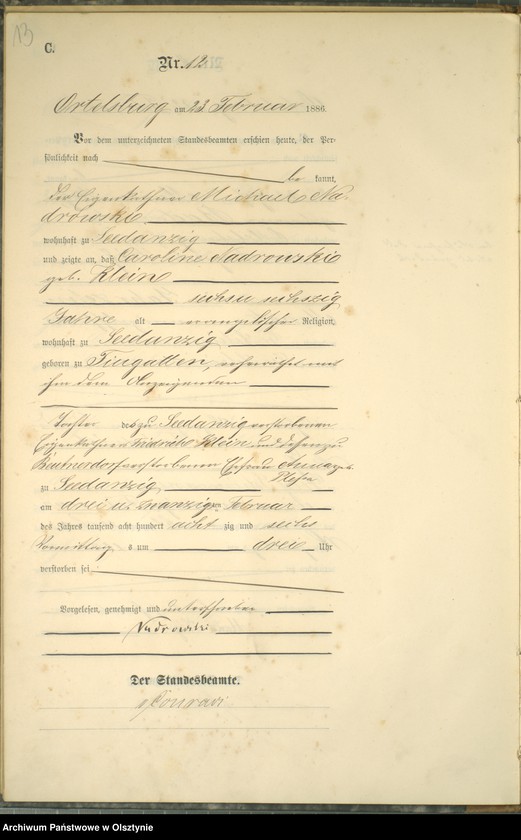 13
C.
Nr. 12.
Ortelsburg am 23 Februar 1886.
Vor dem unterzeichneten Standesbeamten erschien heute, der Per-
sönlichkeit nach
be kannt,
der Eigenkäthner Michael Na-
drowski
wohnhaft zu Seedanzig
und zeigte an, daß Caroline Nadrowski
geb. Klein
sechsu sechszig
Jahre alt evangelischer Religion,
wohnhaft zu Seedanzig
geboren zu verheirathet mit
ihm dem Anzeigenden
Tochter des zu Seedanzig verstorbenen
Eigenkäthners Friedrich Klein und dessen zu
Beutnerdorf verstorbenen Ehefrau Anna geb.
zu Seedanzig
am drei u. zwanzigsten Februar
des Jahres tausend acht hundert acht zig und sechs
Vormittags um drei Uhr
verstorben sei
Vorgelesen, genehmigt und unterschrieben
Nadrowski
Der Standesbeamte.
Conradi
Archiwum Państwowe w Olsztynie